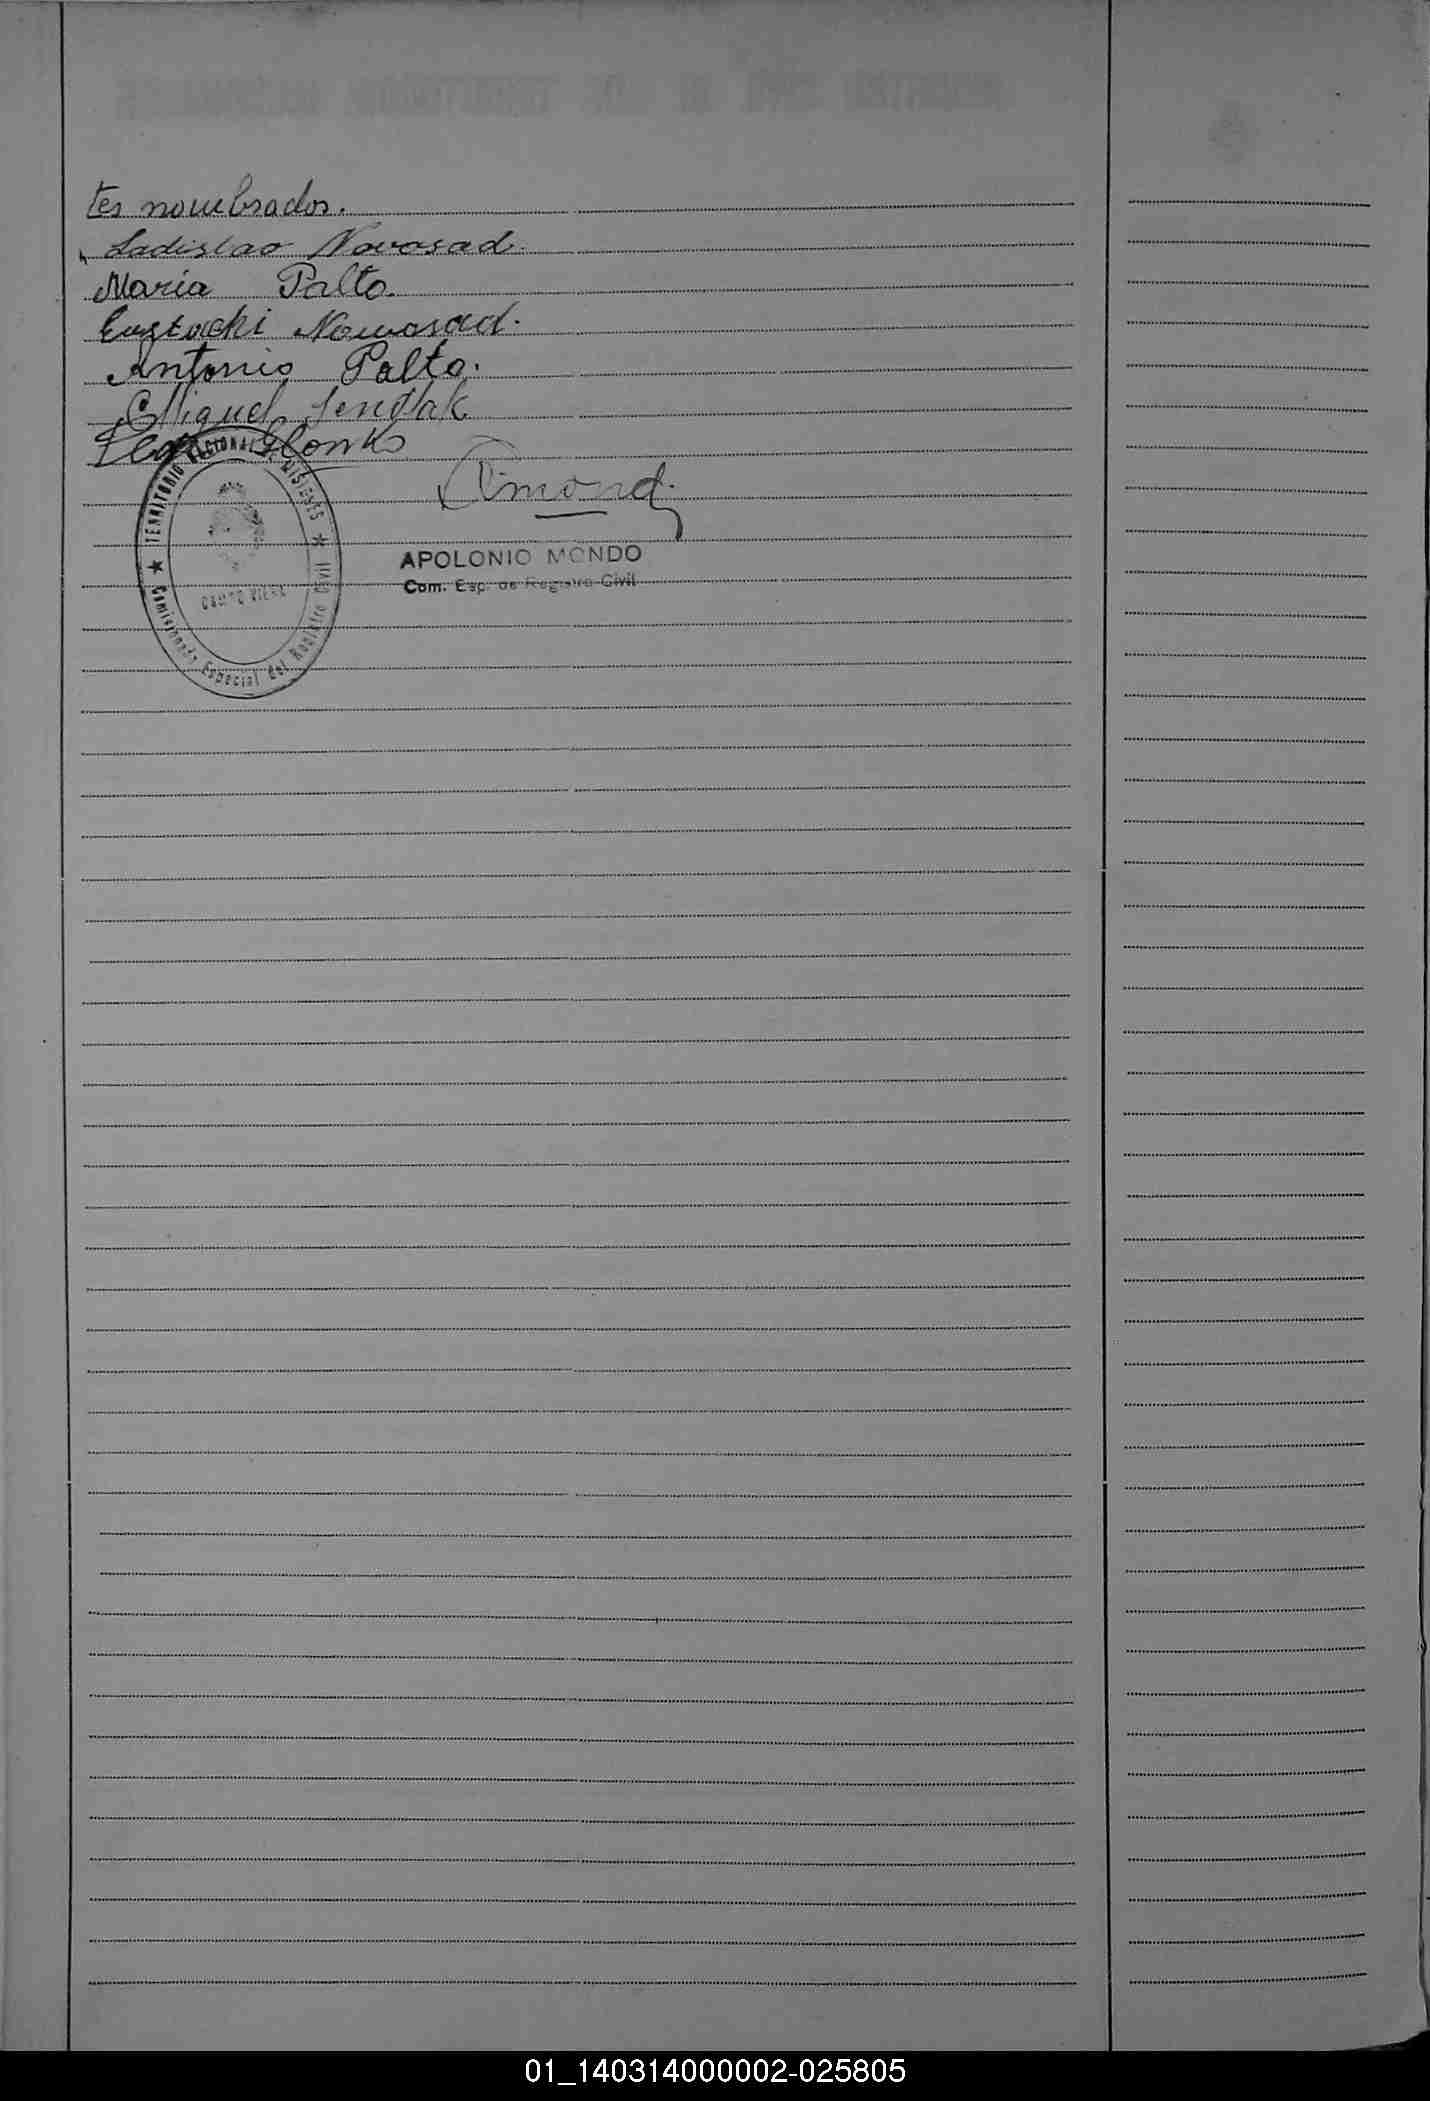 tes nombrados.
Ladislao Novosad.
María Palto.
Eustachi Nowosad.
Antonio Palto.
Miguel Sendlak
TERRITORIO NACIONAL MISIONES
CAMPO VIERA
Comisionado Especial del Registro Civil
APOLONIO MONDO
Com. Esp. de Registro Civil
01_140314000002-025805